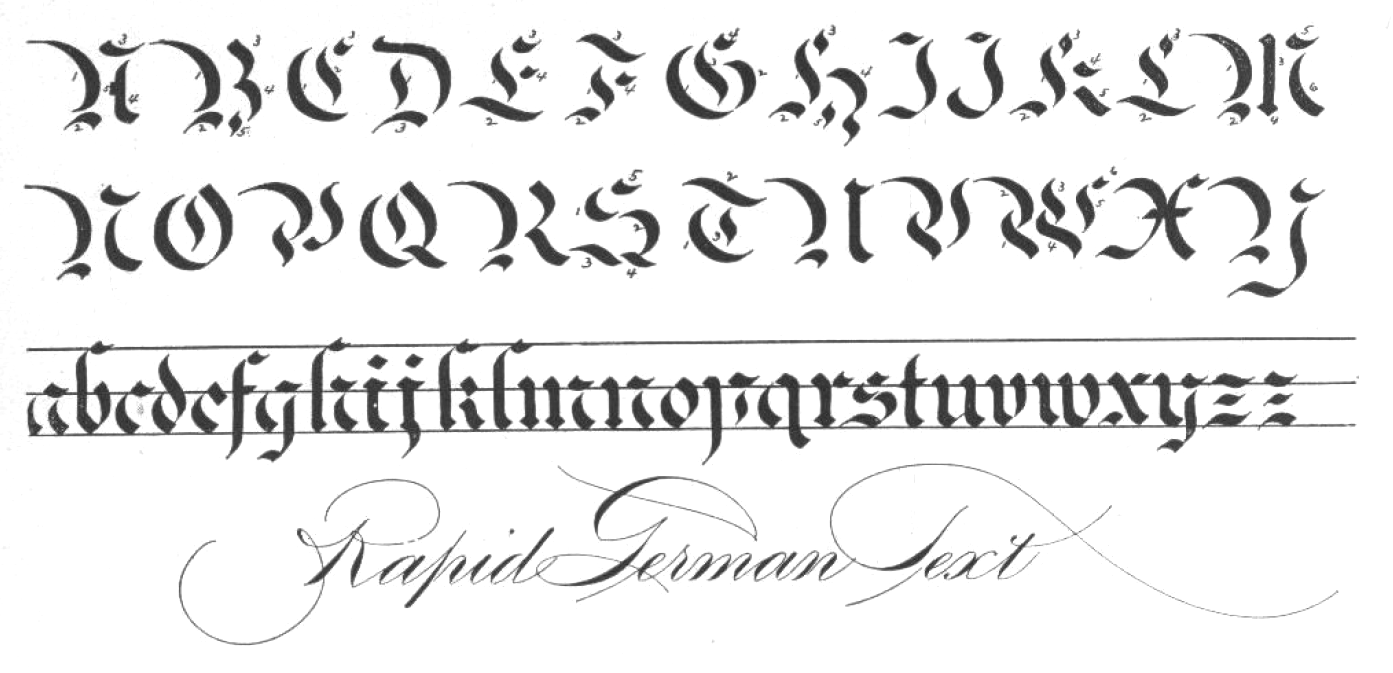 A B C D E F G H I J K L M
N O P Q R S T U V W X Y
a b c d e f g h i j k l m n o p q r s t u v w x y z z
Rapid German Text